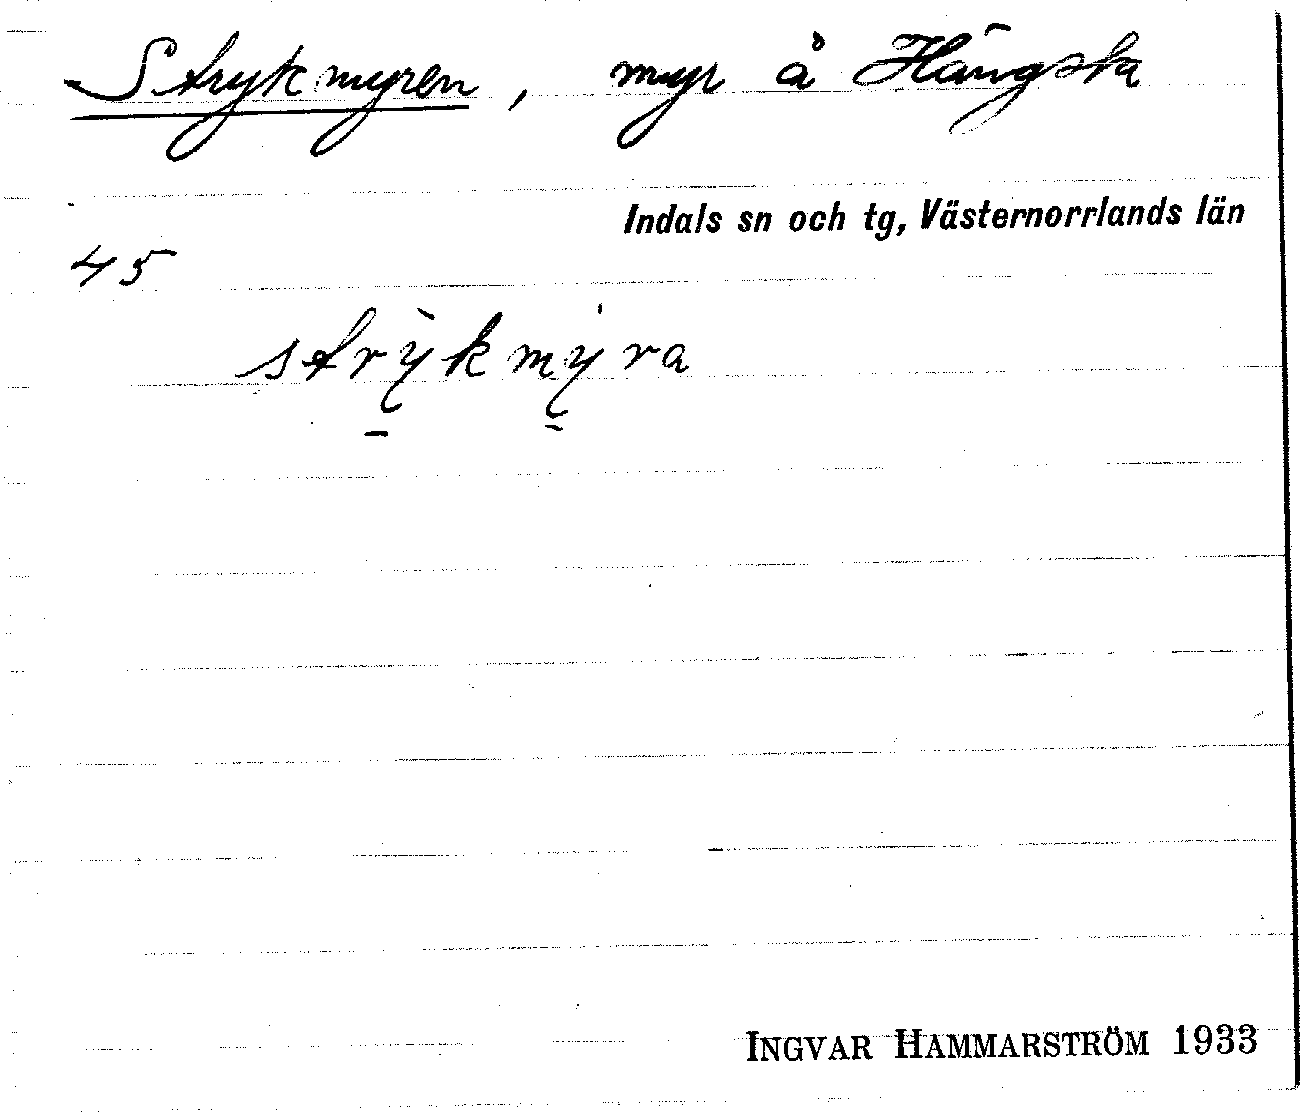 Strykmyren, myr å Hängsta
Indals sn och tg, Västernorrlands län
45
strỳkmýra
INGVAR HAMMARSTRÖM 1933